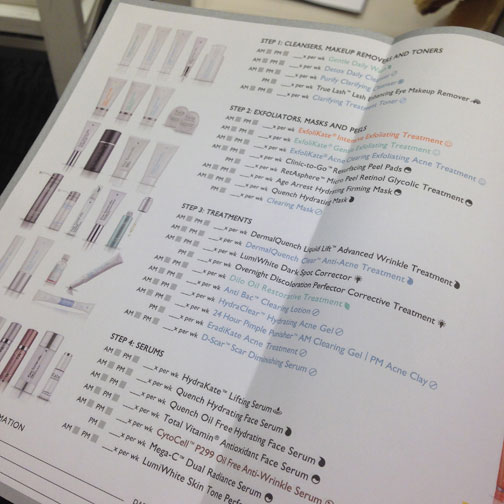 STEP 1: CLEANSERS, MAKEUP REMOVERS AND TONERS
AM PM __x per wk Gentle Daily Wash
AM PM __x per wk Detox Daily Cleanser
AM PM __x per wk Purify Clarifying Cleanser
AM PM __x per wk True Lash™ Lash Enhancing Eye Makeup Remover
AM PM __x per wk Clarifying Treatment Toner
STEP 2: EXFOLIATORS, MASKS AND PEELS
AM PM __x per wk ExfoliKate® Intensive Exfoliating Treatment
AM PM __x per wk ExfoliKate® Gentle Exfoliating Treatment
AM PM __x per wk ExfoliKate® Acne Clearing Exfoliating Acne Treatment
AM PM __x per wk Clinic-to-Go™ Resurfacing Peel Pads
PM __x per wk RetAsphere™ Micro Peel Retinol Glycolic Treatment
AM PM __x per wk Age Arrest Hydrating Firming Mask
AM PM __x per wk Quench Hydrating Mask
PM __x per wk Clearing Mask
STEP 3: TREATMENTS
AM PM __x per wk DermalQuench Liquid Lift™ Advanced Wrinkle Treatment
AM PM __x per wk DermalQuench Clear™ Anti-Acne Treatment
AM PM __x per wk LumiWhite Dark Spot Corrector
PM __x per wk Overnight Discoloration Perfector Corrective Treatment
AM PM __x per wk Dilo Oil Restorative Treatment
AM PM __x per wk Anti Bac™ Clearing Lotion
AM PM __x per wk HydraClear™ Hydrating Acne Gel
AM PM __x per wk 24 Hour Pimple Punisher™ AM Clearing Gel | PM Acne Clay
PM __x per wk EradiKate Acne Treatment
AM PM __x per wk D-Scar™ Scar Diminishing Serum
STEP 4: SERUMS
AM PM __x per wk HydraKate™ Lifting Serum
AM PM __x per wk Quench Hydrating Face Serum
AM PM __x per wk Quench Oil Free Hydrating Face Serum
AM PM __x per wk Total Vitamin® Antioxidant Face Serum
AM PM __x per wk CytoCell™ P299 Oil Free Anti-Wrinkle Serum
AM PM __x per wk Mega-C™ Dual Radiance Serum
AM PM __x per wk LumiWhite Skin Tone